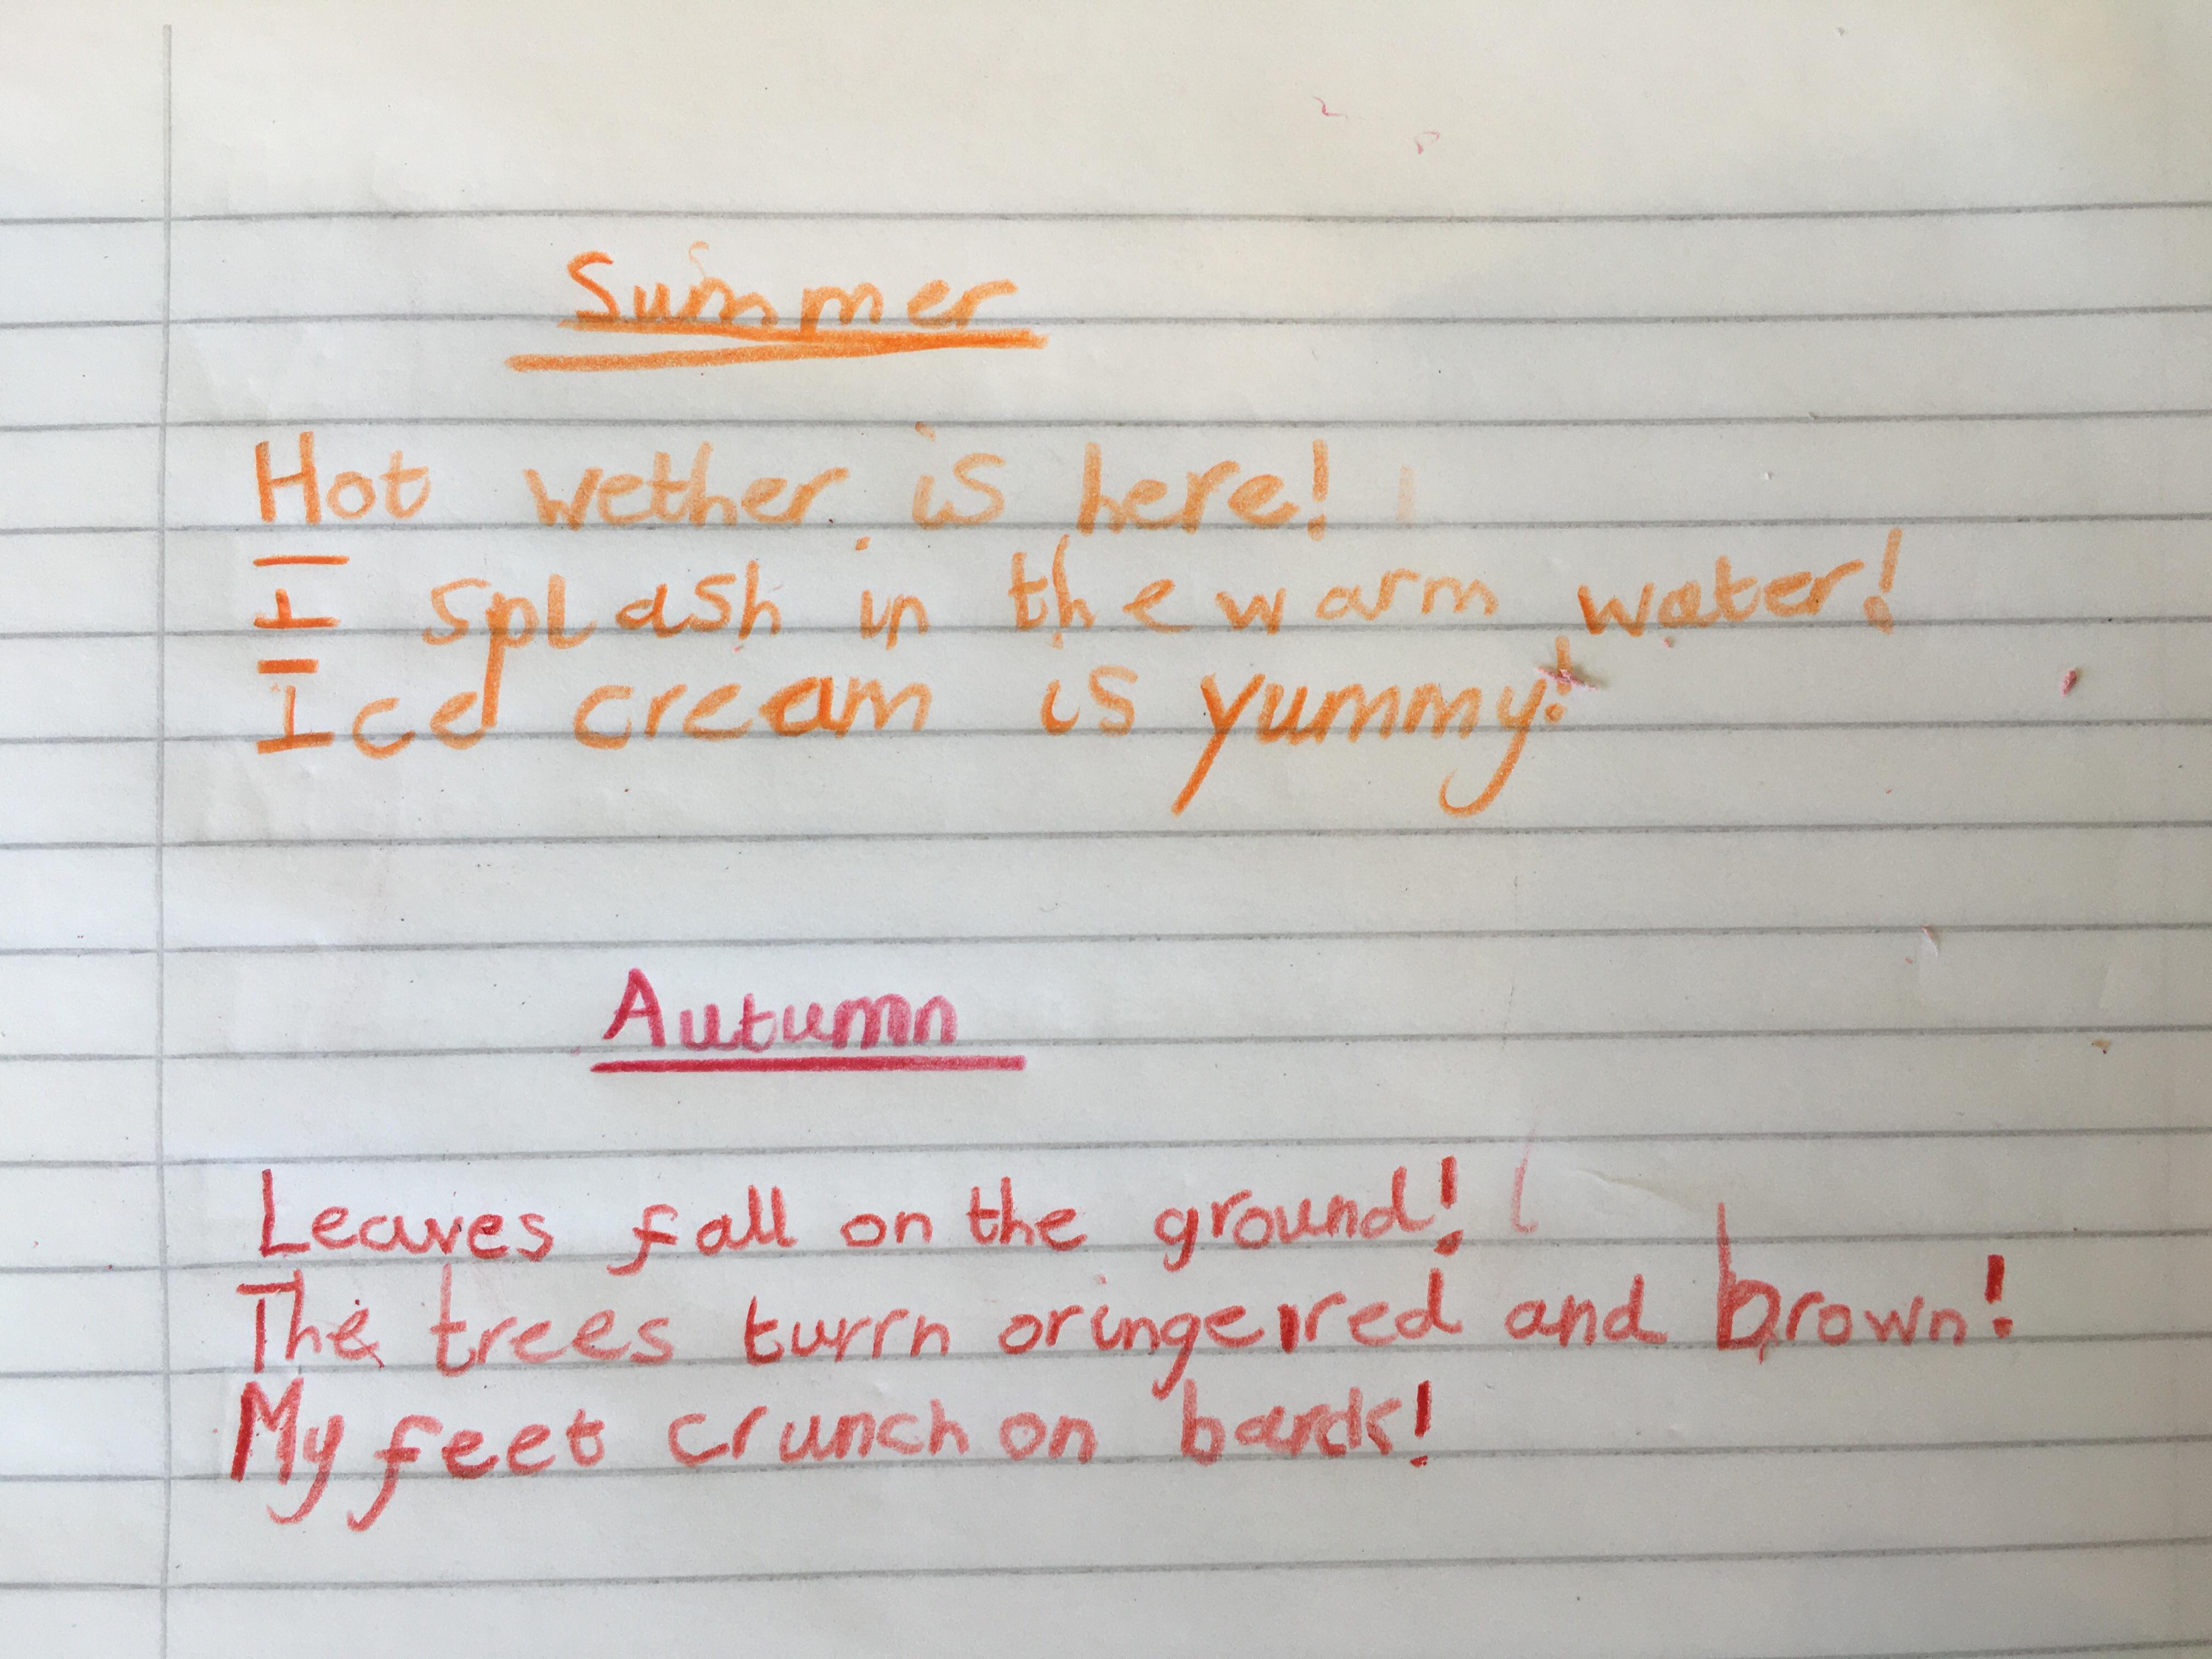 Summer
Hot wether is here!
I splash in the warm water!
Ice cream is yummy!
Autumn
Leaves fall on the ground!
The trees turrn oringe, red and brown!
My feet crunch on